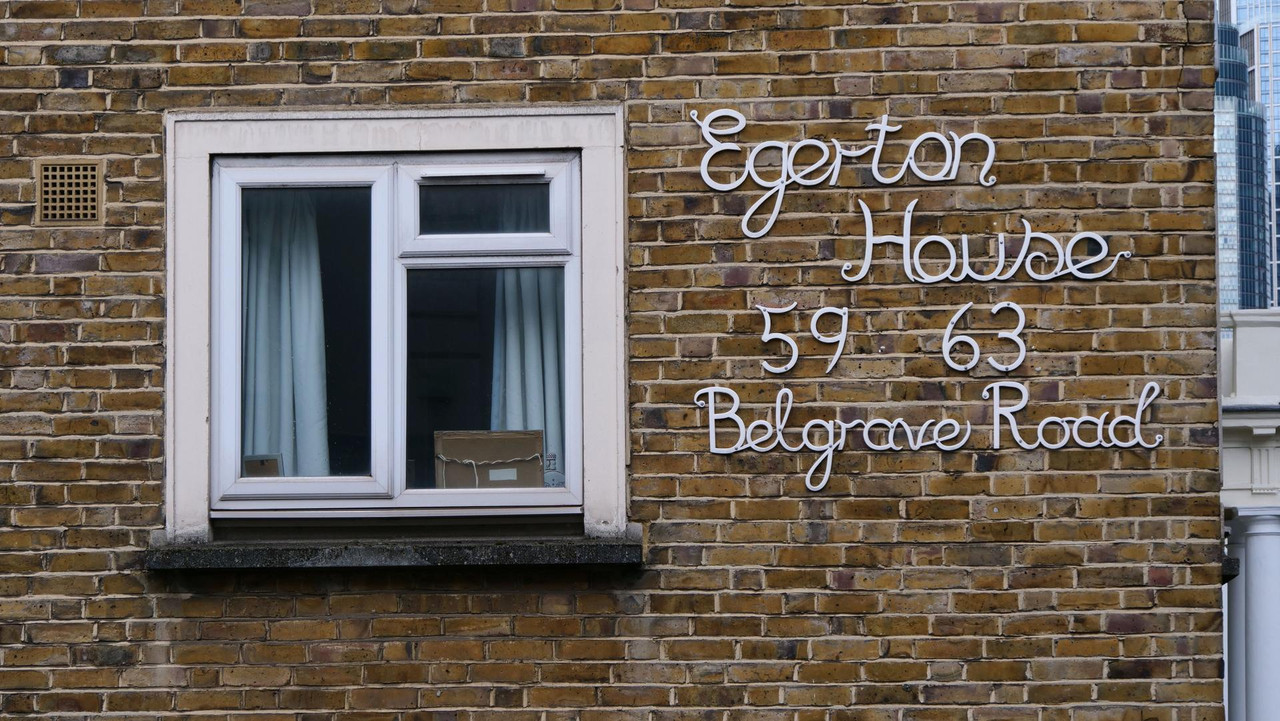 Egerton
House
59 63
Belgrave Road